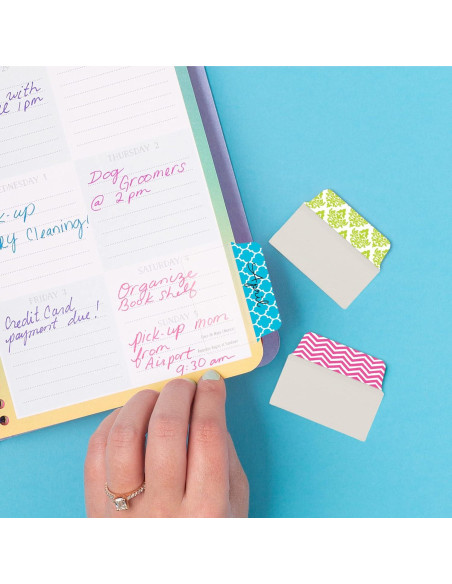 with
1pm
THURSDAY 2
Dog
Groomers
@ 2pm
WEDNESDAY 1
-up
ry Cleaning!
SATURDAY 4
Organize
Book shelf
FRIDAY 3
Credit Card
payment due!
SUNDAY 5
Pick-up Mom
from
Airport
9:30 am